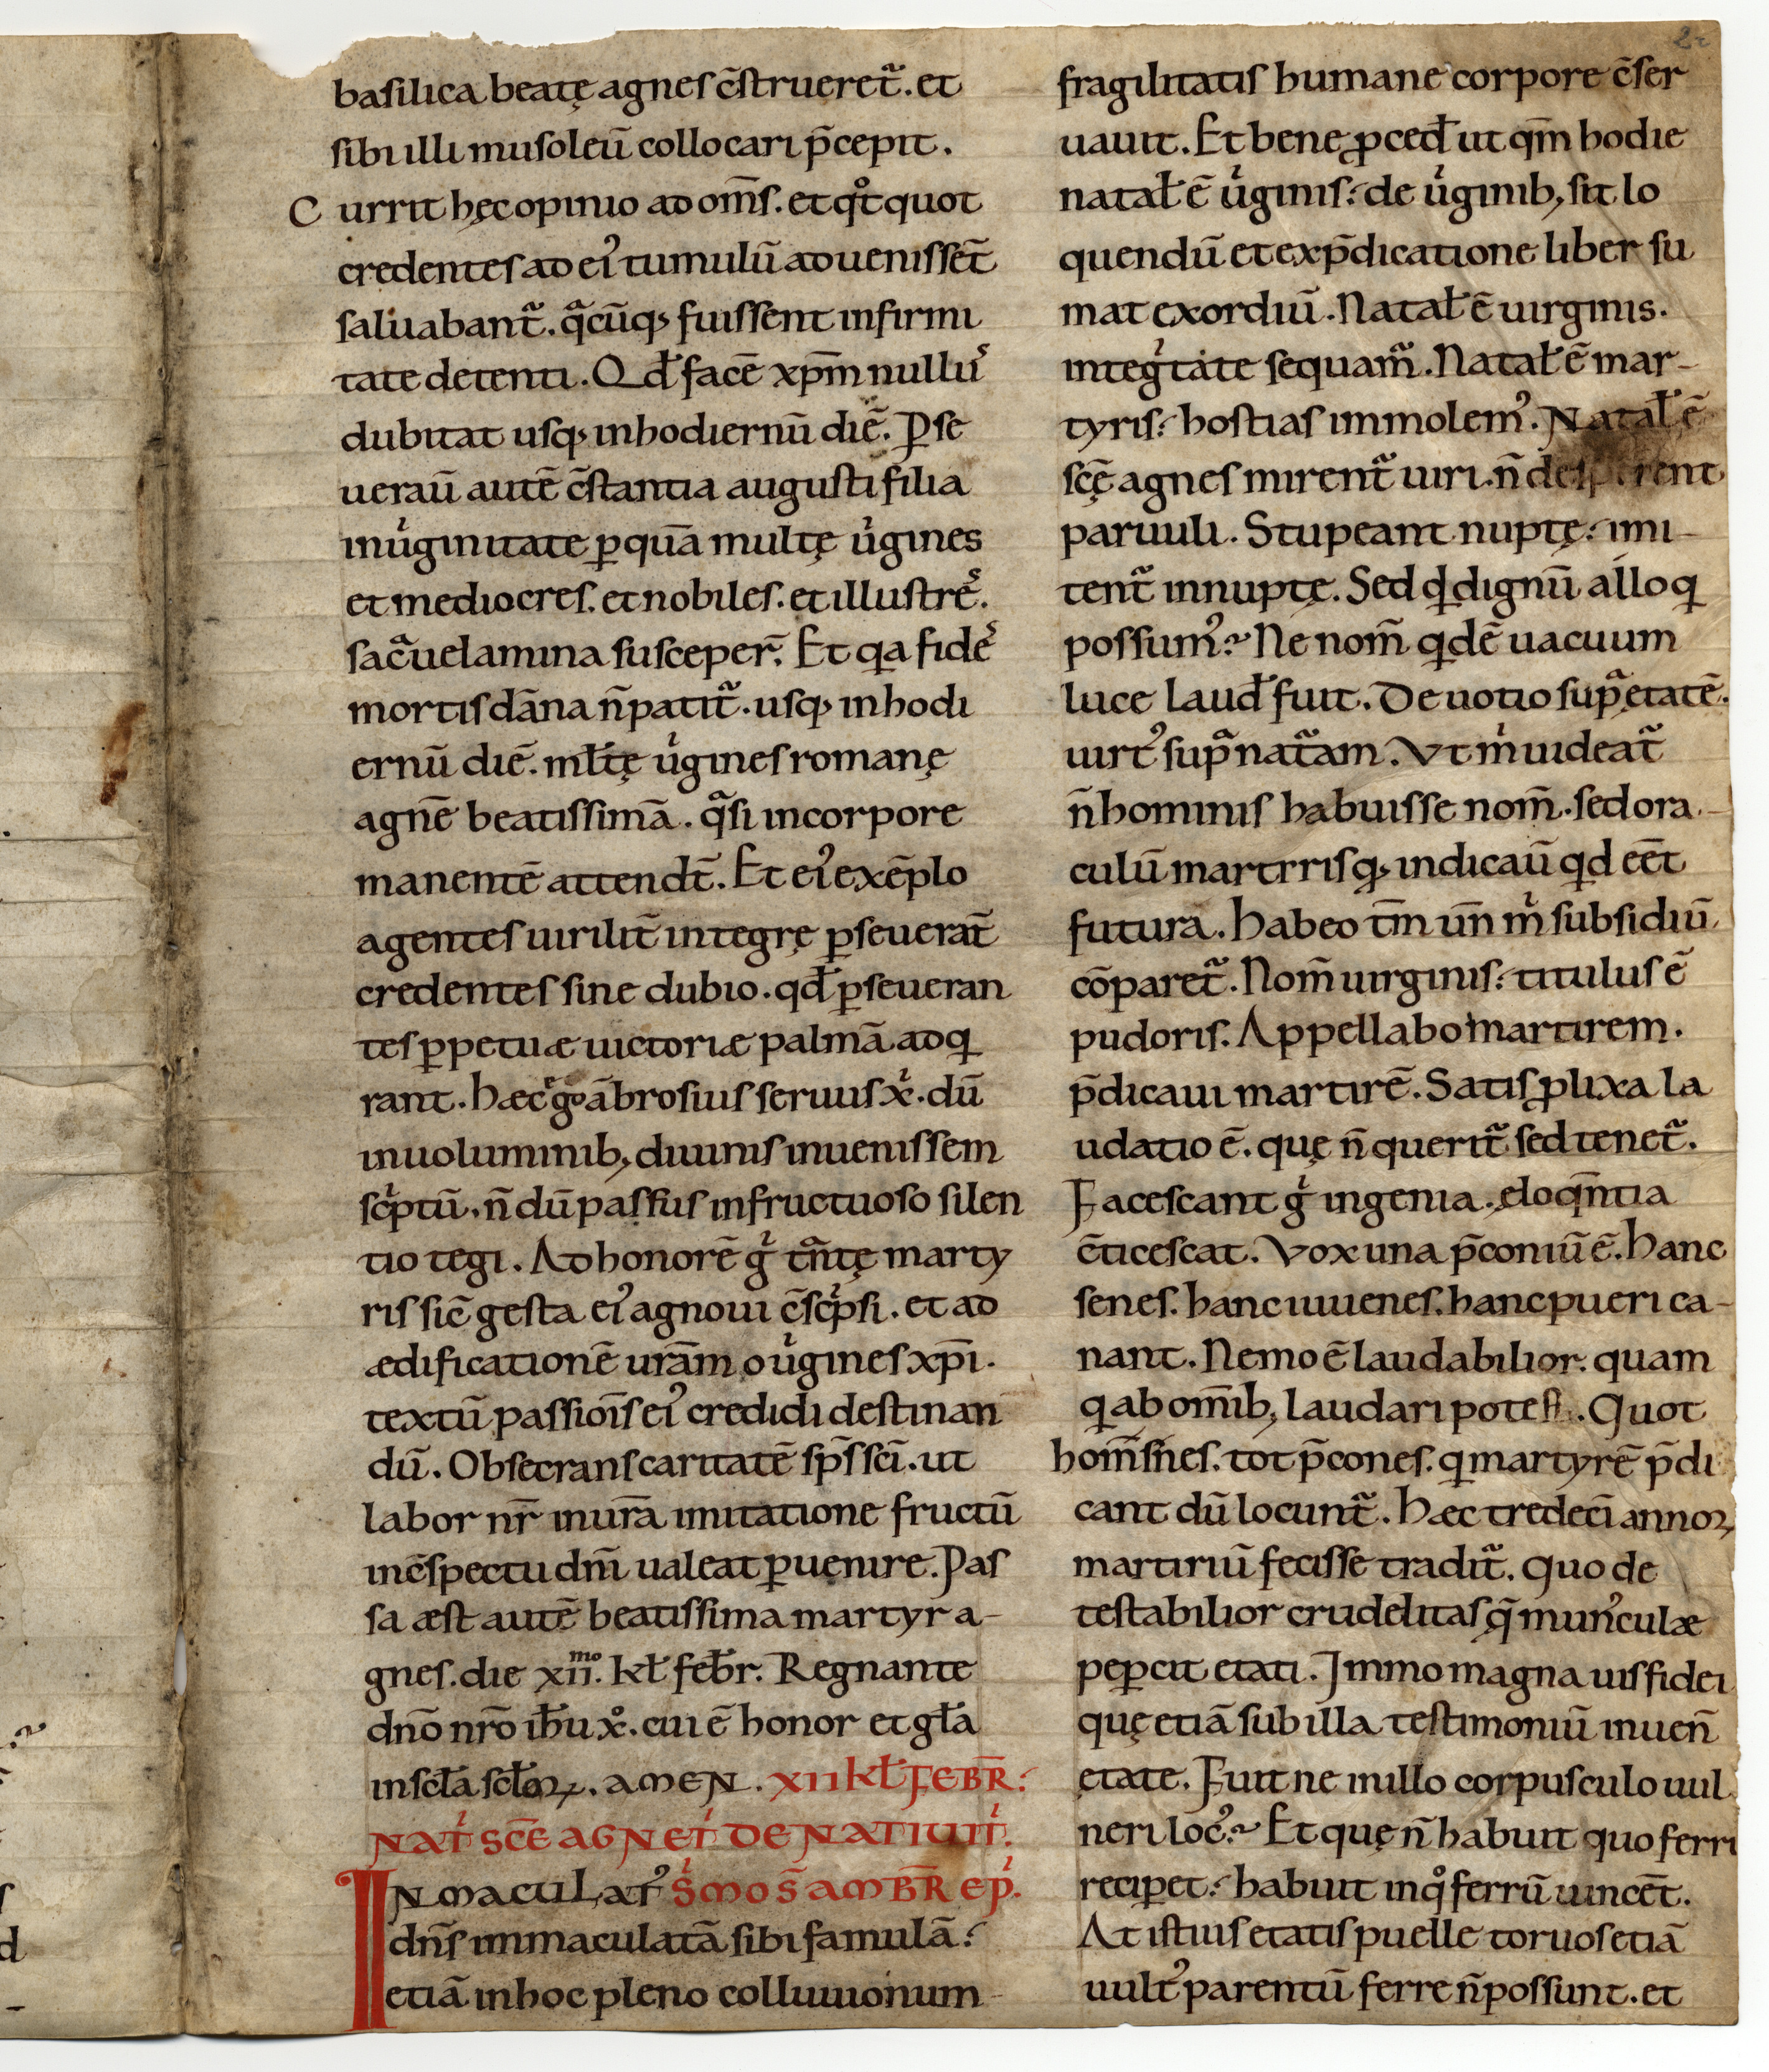 basilica beatę agnes c̄strueret᷑. et
sibi illi musoleū collocari p̄cepit.
Currit hęc opinio ad om̄s. et qͦt quot
credentes ad ei᾽ tumulū aduenissēt
saluabant᷑. qͣcūq; fuissent infirmi
tate detenti. Qđ facē xp̄m nullus
dubitat usq; in hodiernū diē. Pse
ueraū autē c̄stantia augusti filia
in uͥginitate ꝑ quā multę uͥgines
et mediocres. et nobiles. et illustres.
sac̄ͣ uelamina susceper̄. Et qa fides
mortis dāna n̄ patit᷑. usq; in hodi
ernū diē. mꝉtę uͥgines romanę
agnē beatissimā. qͣsi in corpore
manentē attendt̄. Et ei᾽ exēplo
agentes uirilit̄ integrę ꝑseuerat̄
credentes sine dubio. qđ ꝑseueran
tes ꝑpetuæ uictoriæ palmā adq
rant. Hæc gͥ ego ābrosius seruus xͥ. dū
in uoluminib; diuinis inuenissem
scͥptū. n̄ dū passus infructuoso silen
tio tegi. Ad honorē gͥ tn̄ͣtę marty
ris sic̄ gesta ei᾽ agnoui c̄scͥpsi. et ad
ædificationē urām o uͥgines xp̄i.
textū passiōis ei᾽ credidi destinan
dū. Obsecrans caritatē sp̄s sc̄i. ut
labor nr̄ in ur̄a imitatione fructū
in c̄spectu dn̄i ualeat ꝑuenire. Pas
sa æst autē beatissima martyr a-
gnes. die xii.ᵐᵒ kꝉ febr. Regnante
dn̄o nr̄o ihu xͦ. cui ē honor et gꝉa
in scꝉa scꝉoꝝ. amen. XII KꝈ FEBR̄.
NAT̕ SC̄E AGNET̕ DE NATIUIT̕.
INmaculat᾽ Sͥmo S̄ AMBR̄ EP̕.
dn̄s immaculatā sibi famulā.
etiā in hoc pleno colluuionum
fragilitatis humane corpore c̄ser
uauit. Et bene ꝓcedꝉ ut qm̄ hodie
nataꝉ ē uͥginis. de uͥginib; sit lo
quendū et ex p̄dicatione liber su
mat exordiū. Nataꝉ ē uirginis.
integͥtate sequam᷑. Nataꝉ ē mar-
tyris. hostias immolem᾽. Nataꝉ ē
sc̄ę agnes mirent᷑ uiri. n̄ desperent
paruuli. Stupeant nuptę. imi-
tent᷑ innuptę. Sed qd dignū alloq
possum᾽. Ne nom̄ qdē uacuum
luce laudꝉ fuit. Deuotio supͣ ętatē.
uirt᾽ supͣ nat᷑am. Vt mͥ uideat᷑
n̄ hominis habuisse nom̄. sed ora-
culū martrris q; indicaū qd eēt
futura. Habeo tm̄ un̄ mͥ subsidiū
cōparet᷑. Nom̄ uirginis. titulus ē
pudoris. Appellabo martirem.
p̄dicaui martirē. Satis ꝓlixa la
udatio ē. quę n̄ querit᷑ sed tenet᷑.
Facescant gͥ ingenia. eloqn̄tia
c̄ticescat. Vox una p̄coniū ē. Hanc
senes. hanc iuuenes. hanc pueri ca-
nant. Nemo ē laudabilior. quam
q ab om̄ib; laudari potest. Quot
hom̄s nes. tot p̄cones. q martyrē p̄di
cant dū locunt᷑. Hæc tredeci annoꝝ
martiriū fecisse tradit᷑. Quo de
testabilior crudelitas q̄ mun᾽culæ
peꝑcit etati. Immo magna uis fidei
quę etiā sub illa testimoniū inuen̄
ętate. Fuit ne in illo corpusculo uul
neri loc᾽. Et quę n̄ habuit quo ferrū
reciꝑet. habuit in qͦ ferrū uincēt.
At istius etatis puelle toruos etiā
uult᾽ parentū ferre n̄ possunt. et